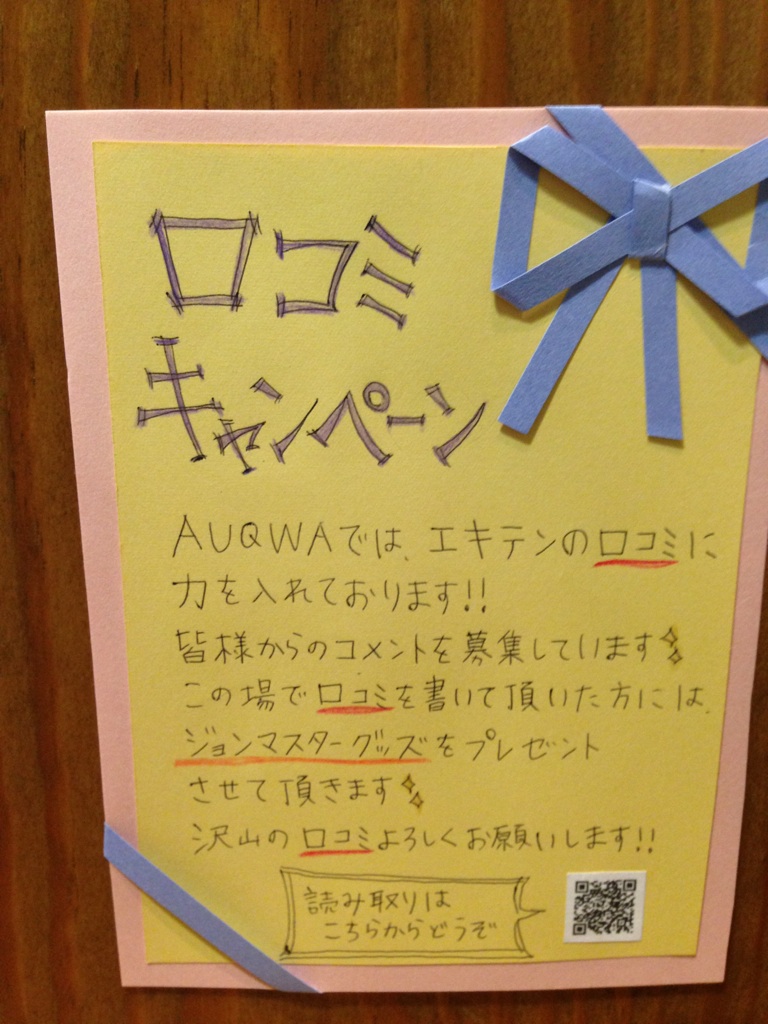 口コミ
キャンペーン
AUQWAでは、エキテンの口コミに
力を入れております!!
皆様からのコメントを募集しています
この場で口コミを書いて頂いた方には、
ジョンマスターグッズをプレゼント
させて頂きます
沢山の口コミよろしくお願いします!!
読み取りは
こちらからどうぞ